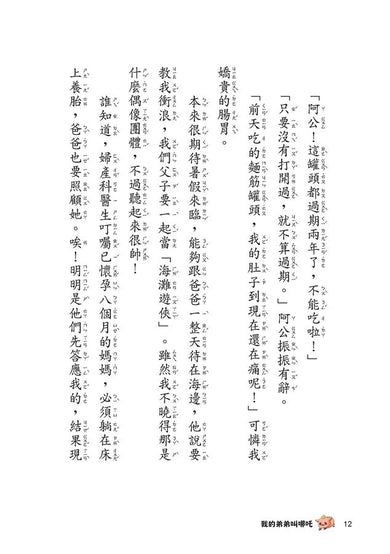 「阿公！這罐頭都過期兩年了，不能吃啦！」
「只要沒有打開過，就不算過期。」阿公振振有辭。
「前天吃的麵筋罐頭，我的肚子到現在還在痛呢！」可憐我
嬌貴的腸胃。
本來很期待暑假來臨，能夠跟爸爸一整天待在海邊，他說要
教我衝浪，我們父子要一起當「海灘遊俠」。雖然我不曉得那是
什麼偶像團體，不過聽起來很帥！
誰知道，婦產科醫生叮囑已懷孕八個月的媽媽，必須躺在床
上養胎，爸爸也要照顧她。唉！明明是他們先答應我的，結果現
我的弟弟叫哪吒 12